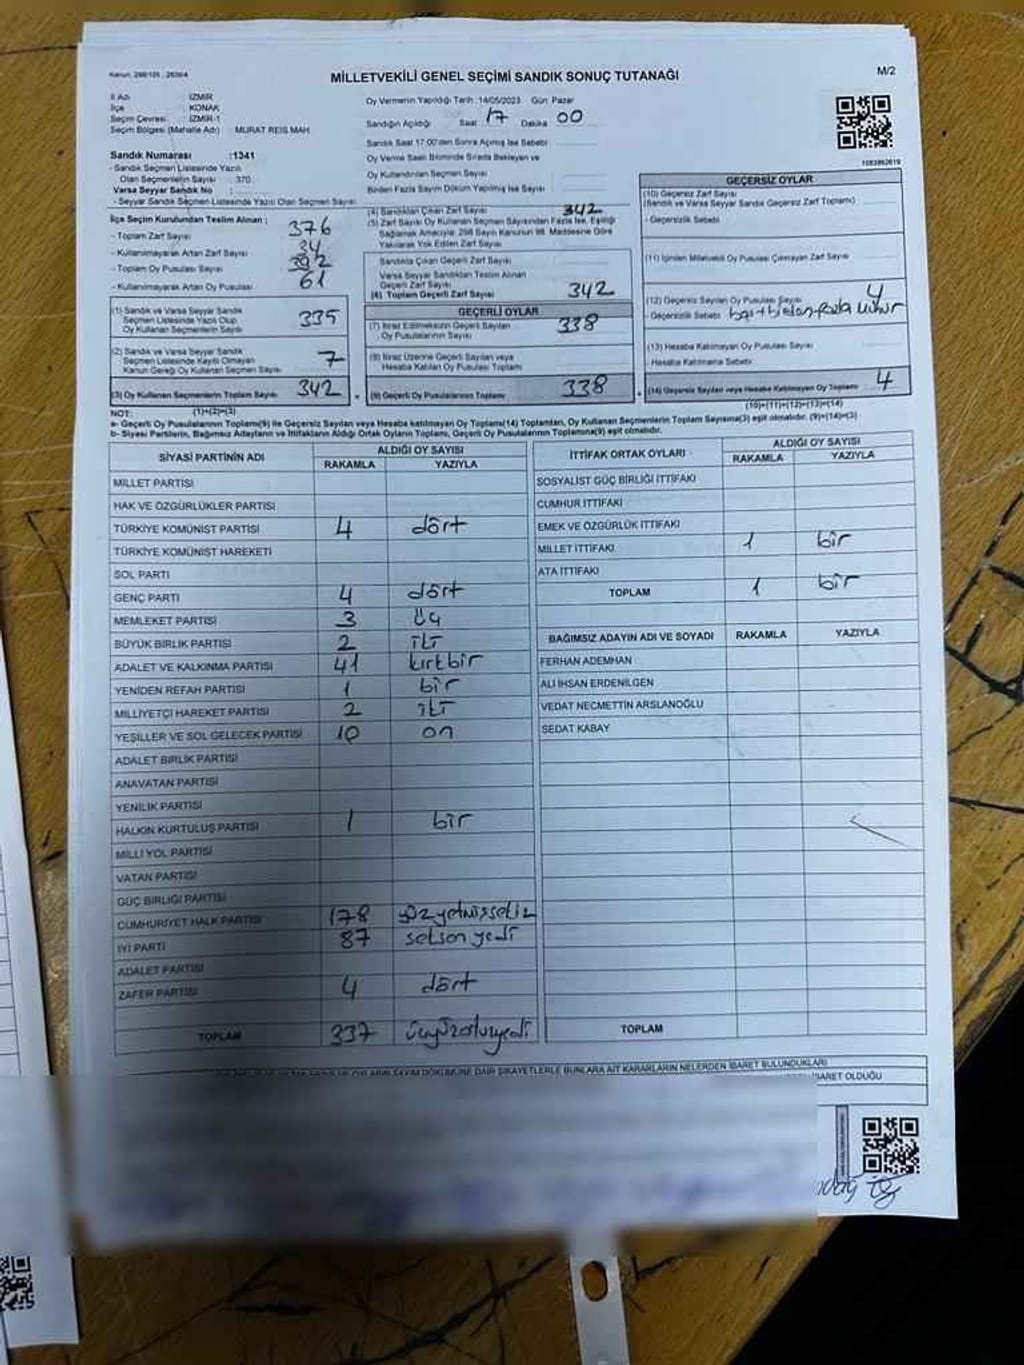 Kanun: 298/105 , 2839/4
MİLLETVEKİLİ GENEL SEÇİMİ SANDIK SONUÇ TUTANAĞI
M/2
İl Adı : İZMİR
İlçe : KONAK
Seçim Çevresi : İZMİR-1
Seçim Bölgesi (Mahalle Adı) : MURAT REİS MAH
Oy Vermenin Yapıldığı Tarih :14/05/2023 Gün: Pazar
Sandığın Açıldığı Saat 17 Dakika 00
Sandık Saat 17:00'den Sonra Açılmış İse Sebebi
Oy Verme Saati Bitiminde Sırada Bekleyen ve
Oy Kullandırılan Seçmen Sayısı
Birden Fazla Sayım Döküm Yapılmış İse Sayısı
Sandık Numarası :1341
- Sandık Seçmen Listesinde Yazılı
Olan Seçmenlerin Sayısı : 370
Varsa Seyyar Sandık No :
- Seyyar Sandık Seçmen Listesinde Yazılı Olan Seçmen Sayısı
İlçe Seçim Kurulundan Teslim Alınan :
- Toplam Zarf Sayısı 376
- Kullanılmayarak Artan Zarf Sayısı 34
- Toplam Oy Pusulası Sayısı
- Kullanılmayarak Artan Oy Pusulası 61
(1) Sandık ve Varsa Seyyar Sandık
Seçmen Listesinde Yazılı Olup
Oy Kullanan Seçmenlerin Sayısı 335
(2) Sandık ve Varsa Seyyar Sandık
Seçmen Listesinde Kayıtlı Olmayan
Kanun Gereği Oy Kullanan Seçmen Sayısı 7
(3) Oy Kullanan Seçmenlerin Toplam Sayısı 342
(1)+(2)=(3)
(4) Sandıktan Çıkan Zarf Sayısı 342
(5) Zarf Sayısı Oy Kullanan Seçmen Sayısından Fazla İse, Eşitliği
Sağlamak Amacıyla; 298 Sayılı Kanunun 98. Maddesine Göre
Yakılarak Yok Edilen Zarf Sayısı
Sandıkta Çıkan Geçerli Zarf Sayısı
Varsa Seyyar Sandıktan Teslim Alınan
Geçerli Zarf Sayısı
(6) Toplam Geçerli Zarf Sayısı 342
GEÇERLİ OYLAR
(7) İtiraz Edilmeksizin Geçerli Sayılan
Oy Pusulalarının Sayısı 338
(8) İtiraz Üzerine Geçerli Sayılan veya
Hesaba Katılan Oy Pusulası Toplamı
(9) Geçerli Oy Pusulalarının Toplamı 338
1083962619
GEÇERSİZ OYLAR
(10) Geçersiz Zarf Sayısı
(Sandık ve Varsa Seyyar Sandık Geçersiz Zarf Toplamı)
- Geçersizlik Sebebi
(11) İçinden Milletvekili Oy Pusulası Çıkmayan Zarf Sayısı
(12) Geçersiz Sayılan Oy Pusulası Sayısı 4
- Geçersizlik Sebebi birden fazla mühür
(13) Hesaba Katılmayan Oy Pusulası Sayısı
Hesaba Katılmama Sebebi
(14) Geçersiz Sayılan veya Hesaba Katılmayan Oy Toplamı 4
(10)+(11)+(12)+(13)=(14)
NOT:
a- Geçerli Oy Pusulalarının Toplamı(9) ile Geçersiz Sayılan veya Hesaba katılmayan Oy Toplamı(14) Toplamları, Oy Kullanan Seçmenlerin Toplam Sayısına(3) eşit olmalıdır. (9)+(14)=(3)
b- Siyasi Partilerin, Bağımsız Adayların ve İttifakların Aldığı Ortak Oyların Toplamı, Geçerli Oy Pusulalarının Toplamına(9) eşit olmalıdır.
SİYASİ PARTİNİN ADI
ALDIĞI OY SAYISI
RAKAMLA YAZIYLA
MİLLET PARTİSİ
HAK VE ÖZGÜRLÜKLER PARTİSİ
TÜRKİYE KOMÜNİST PARTİSİ 4 dört
TÜRKİYE KOMÜNİST HAREKETİ
SOL PARTİ
GENÇ PARTİ 4 dört
MEMLEKET PARTİSİ 3 üç
BÜYÜK BİRLİK PARTİSİ 2 iki
ADALET VE KALKINMA PARTİSİ 41 kırkbir
YENİDEN REFAH PARTİSİ 1 bir
MİLLİYETÇİ HAREKET PARTİSİ 2 iki
YEŞİLLER VE SOL GELECEK PARTİSİ 10 on
ADALET BİRLİK PARTİSİ
ANAVATAN PARTİSİ
YENİLİK PARTİSİ
HALKIN KURTULUŞ PARTİSİ 1 bir
MİLLİ YOL PARTİSİ
VATAN PARTİSİ
GÜÇ BİRLİĞİ PARTİSİ
CUMHURİYET HALK PARTİSİ 178 yüzyetmişsekiz
İYİ PARTİ 87 seksen yedi
ADALET PARTİSİ
ZAFER PARTİSİ 4 dört
TOPLAM 337 üçyüzotuzyedi
İTTİFAK ORTAK OYLARI
ALDIĞI OY SAYISI
RAKAMLA YAZIYLA
SOSYALİST GÜÇ BİRLİĞİ İTTİFAKI
CUMHUR İTTİFAKI
EMEK VE ÖZGÜRLÜK İTTİFAKI
MİLLET İTTİFAKI 1 bir
ATA İTTİFAKI
TOPLAM 1 bir
BAĞIMSIZ ADAYIN ADI VE SOYADI RAKAMLA YAZIYLA
FERHAN ADEMHAN
ALİ İHSAN ERDENİLGEN
VEDAT NECMETTİN ARSLANOĞLU
SEDAT KABAY
TOPLAM
SAYIM DÖKÜMÜNE DAİR ŞİKAYETLERLE BUNLARA AİT KARARLARIN NELERDEN İBARET BULUNDUKLARI
İBARET OLDUĞU